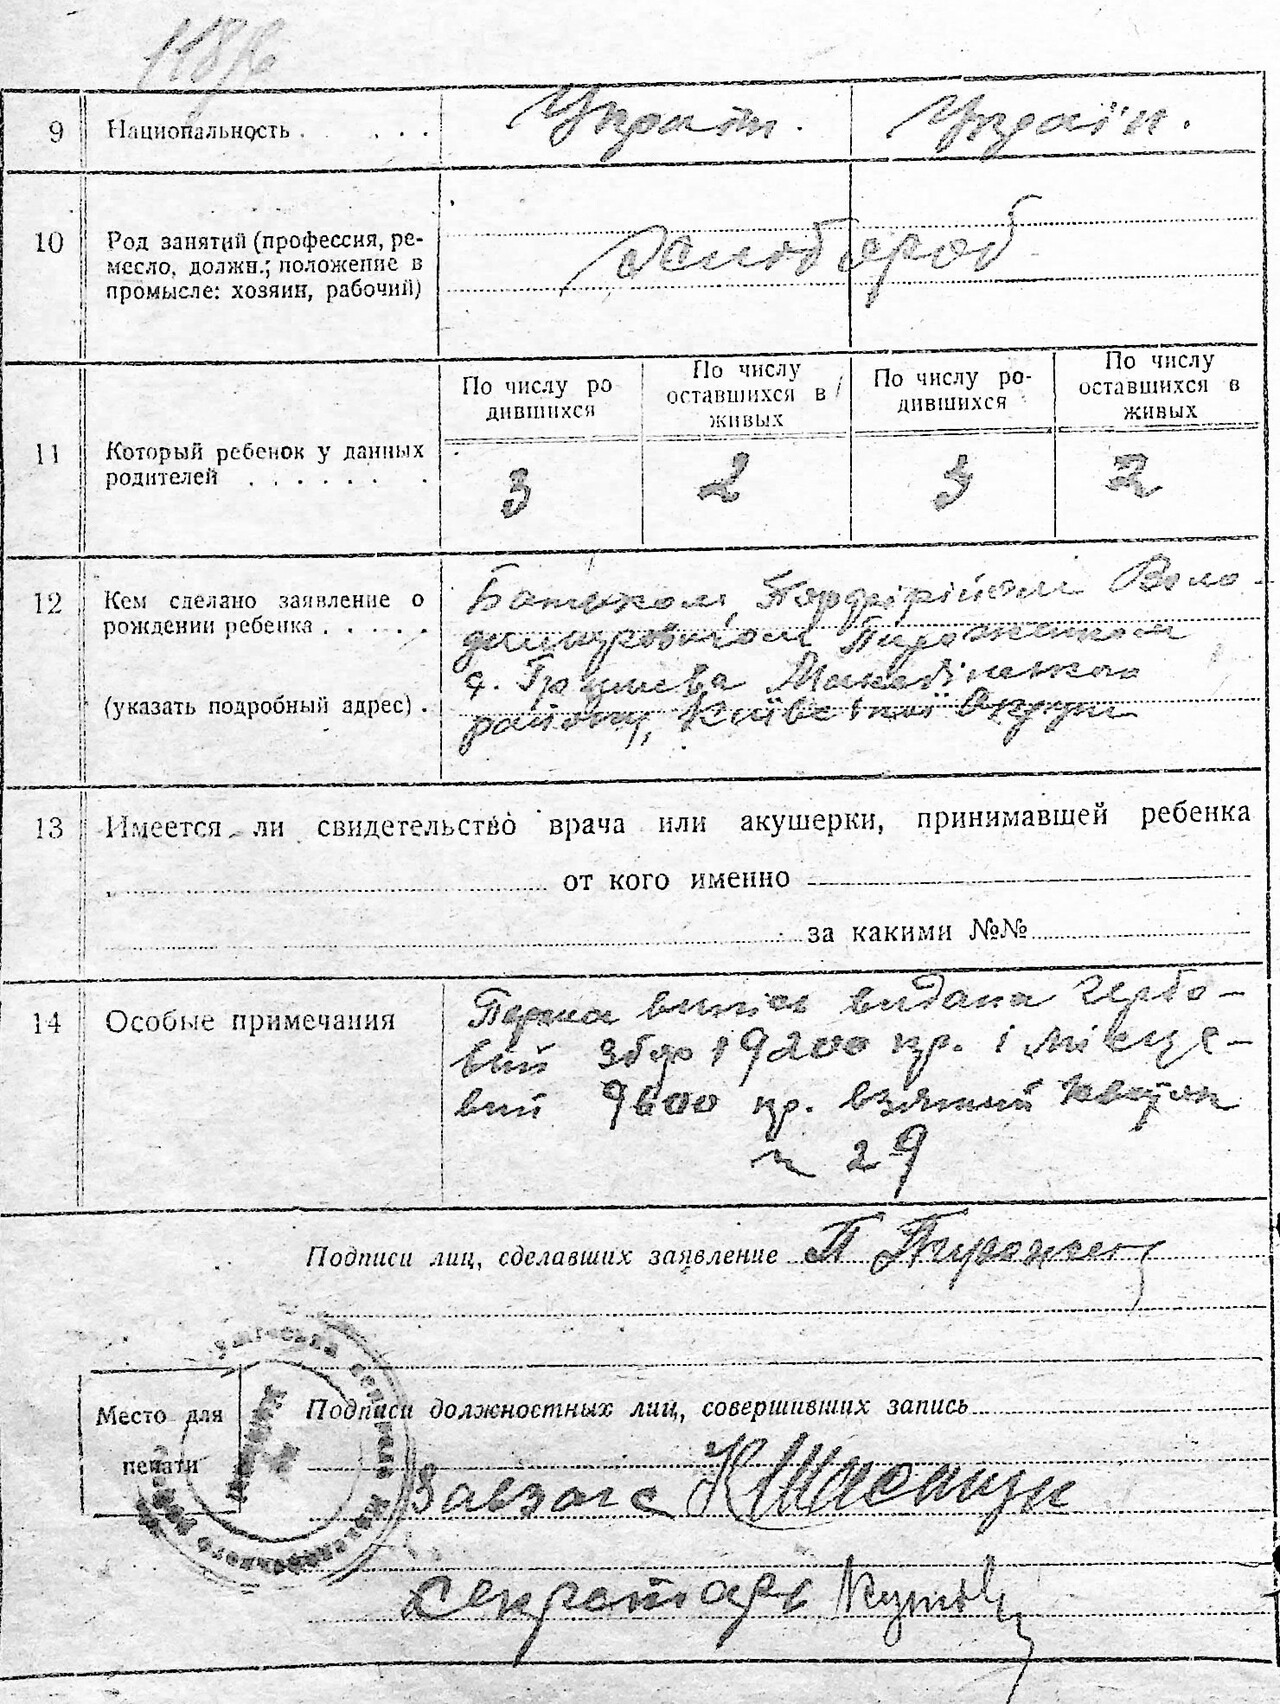 9 Национальность . . . . . Україн. Україн.
10 Род занятий (профессия, ре-
месло, должн.; положение в
промысле: хозяин, рабочий)
Хлибороб
11 Который ребенок у данных
родителей . . . . . . . .
По числу ро
дившихся
По числу
оставшихся в
живых
По числу ро-
дившихся
По числу
оставшихся в
живых
3 2 3 2
12 Кем сделано заявление о
рождении ребенка . . . . .
(указать подробный адрес) .
Батьком, Порфірійом Воло-
димировичом
с. Грузька Макавінського
району, Київської Округи
13 Имеется ли свидетельство врача или акушерки, принимавшей ребенка
от кого именно
за какими №№
14 Особые примечания
Перша випись видана гербо-
вий збор 19200 кр. і місце-
вий 9600 кр. взятий
29
Подписи лиц, сделавших заявление П
Место для
печати
Подписи должностных лиц, совершивших запись
Завзагс
Секретарь